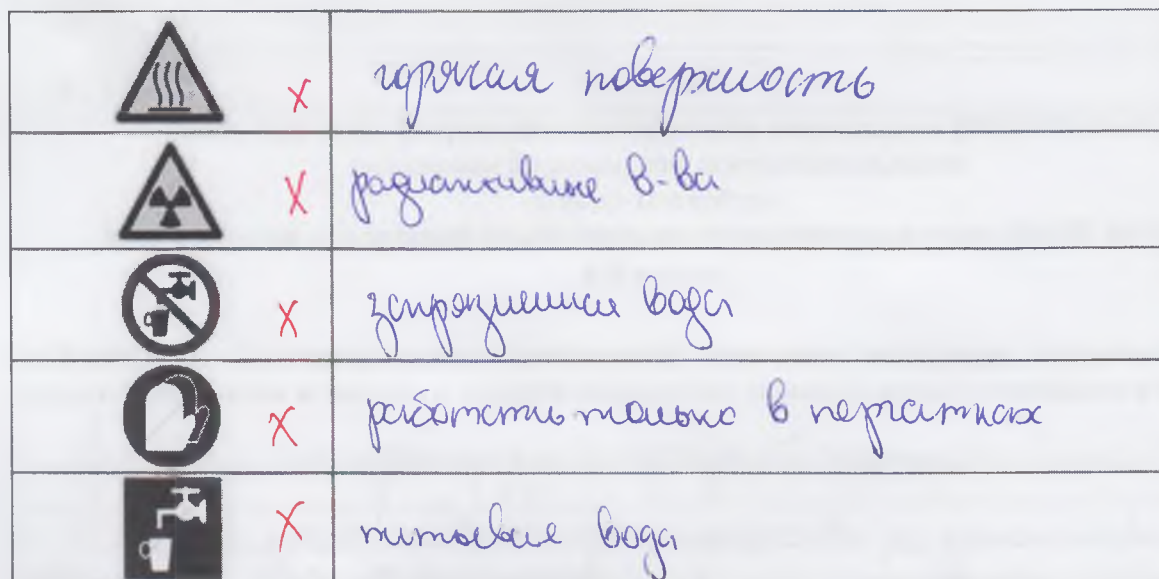 горячая поверхность
радиактивные в-ва
загрязненная вода
работать только в перчатках
питьевая вода